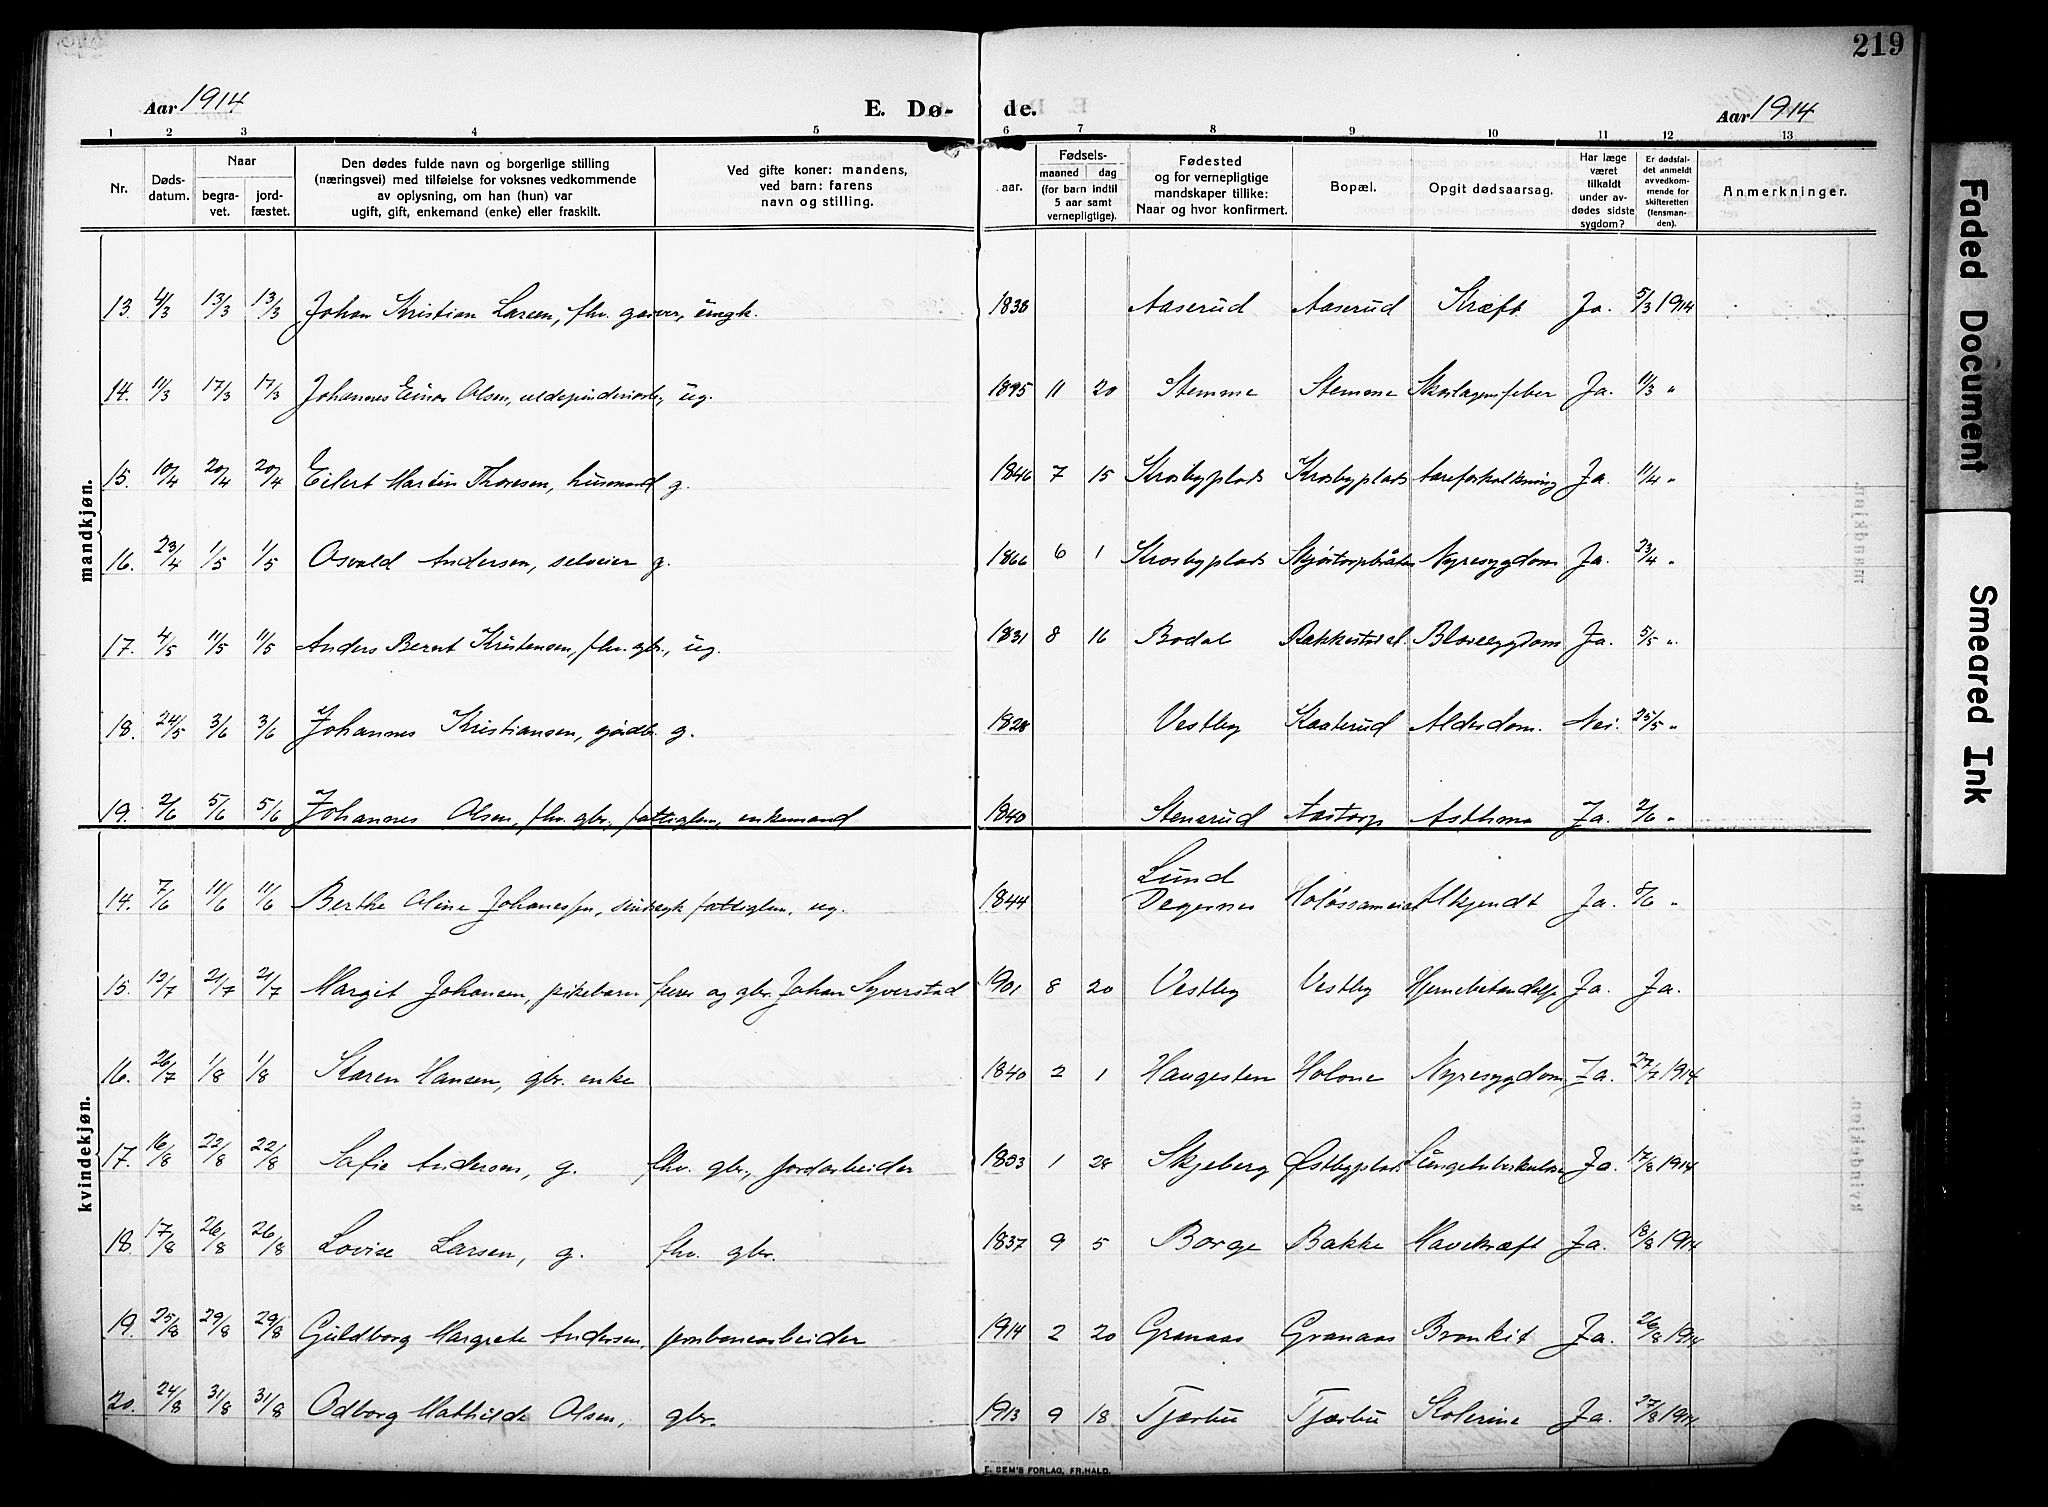 219
Aar 1914
E. Dø-
de.
Aar 1914
1 2 3 4 5 6 7 8 9 10 11 12 13
Nr.
Døds-
datum.
Naar
begra-
vet.
jord-
fæstet.
Den dødes fulde navn og borgerlige stilling
(næringsvei) med tilføielse for voksnes vedkommende
av oplysning, om han (hun) var
ugift, gift, enkemand (enke) eller fraskilt.
Ved gifte koner: mandens,
ved barn: farens
navn og stilling.
aar.
Fødsels-
maaned dag
(for barn indtil
5 aar samt
vernepligtige).
Fødested
og for vernepligtige
mandskaper tillike:
Naar og hvor konfirmert.
Bopæl.
Opgit dødsaarsag.
Har læge
været
tilkaldt
under av-
dødes sidste
sygdom?
Er dødsfal-
det anmeldt
av vedkom-
mende for
skifteretten
(lensman-
den).
Anmerkninger.
mandkjøn.
13. 4/3 13/3 13/3 Johan Kristian Larsen, fhv. garver, ungk. 1838 Aaserud Aaserud Kræft Ja. 5/3 1914
14. 11/3 17/3 17/3 Johannes Einar Olsen, uldspinderiarb., ug. 1895 11 20 Stemme Stemme Skarlagensfeber Ja. 11/3 "
15. 10/4 20/4 20/4 Eilert Martin Thoresen, husmand g. 1846 7 15 Krosbyplads Krosbyplads Aareforkalkning Ja. 11/4 "
16. 23/4 1/5 1/5 Osvald Andersen, selveier g. 1866 6 1 Krosbyplads Skjørtorpbråten Nyresygdom Ja. 23/4 "
17. 4/5 11/5 11/5 Anders Bernt Kristensen, fhv. gbr., ug. 1831 8 16 Bodal Blæresygdom Ja. 5/5 "
18. 24/5 3/6 3/6 Johannes Kristiansen, gårdbr. g. 1828 Vestby Kaaterud Alderdom. Nei. 25/5 "
19. 2/6 5/6 5/6 Johannes Olsen, fhv. gbr., fattiglem, enkemand 1840 Stensrud Aastorp Asthma Ja. 2/6 "
kvindekjøn.
14. 7/6 11/6 11/6 Berthe Oline Johanessen, sindssyk fattiglem, ug. 1844 Lund
Degernes Holøssameiet Ukjendt Ja. 8/6 "
15. 13/7 21/7 21/7 Margit Johansen, pikebarn furer og gbr. Johan Syverstad 1901 8 20 Vestby Vestby Hjernebetændelse Ja. Ja.
16. 26/7 1/8 1/8 Karen Hansen, gbr. enke 1840 2 1 Haugesten Holone Nyresygdom Ja. 27/7 1914
17. 16/8 22/8 22/8 Sofie Andersen, g. fhv. gbr., jordarbeider 1853 1 28 Skjeberg Østbyplads Lungetuberkulose Ja. 17/8 1914
18 17/8 26/8 26/8 Lovise Larsen, g. fhv. gbr. 1837 9 5 Borge Bakke Mavekræft Ja. 18/8 1914
19. 25/8 29/8 29/8 Guldborg Margrete Andersen, jernbanearbeider 1914 2 20 Granaas Granaas Bronkit Ja. 26/8 1914
20. 24/8 31/8 31/8 Odborg Mathilde Olsen, gbr. 1913 9 18 Tjærbu Tjærbu Kolerine Ja. 27/8 1914
E. SEM'S FORLAG, FR.HALD.
Faded Document
Smeared Ink